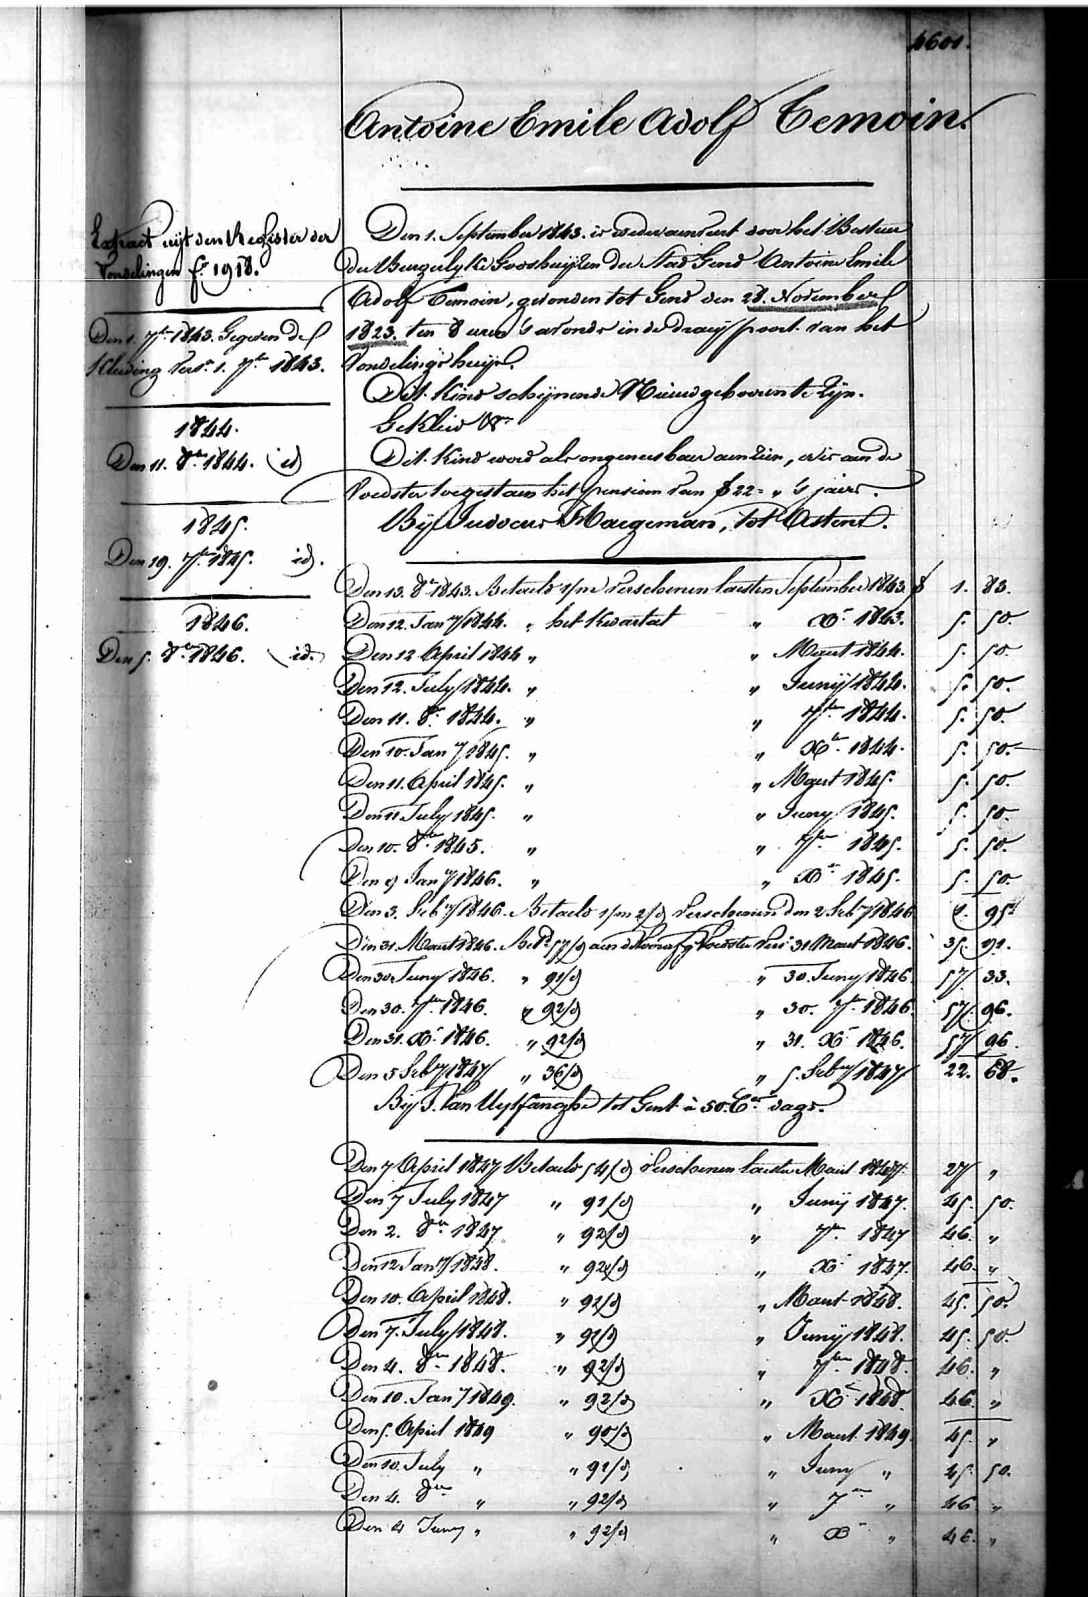 4601.
Antoine Emile Adolf Temoin.
Extract uijt den Register der
Vondelingen f.º 1918.
Den 1. 7ber 1843. Gegeven de
Kleeding vers. 1. 7ber 1843.
1844.
Den 11. 8ber 1844. id
1845.
Den 19. 7ber 1845. id.
1846.
Den 5. 8ber 1846. id.
Den 1. September 1843. is weder aenveert door het Bestuur
der Burgerlyke Godshuijzen der Stad Gend Antoine Emile
Adolf Temoin, gevonden tot Gend den 28. November
1823. ten 8 uren 's avonds in de draeij poort van het
Vondelings huijs.
Dit Kind schijnende Nieuwgeboren te Zijn.
Gekleid &a
Dit Kind word als ongeneesbaer aenzien, er is aen de
Voedster toegestaen het pensioen van f 22 = " 's jaers.
Bij Judocus Haegeman, tot Astene.
Den 13. 8ber 1843. Betaeld 1/m verschenen laesten September 1843. f 1. 83.
Den 12. Jany 1844. " het Kwartael " Xber 1843. 5. 50.
Den 12 April 1844 " " Maert 1844. 5. 50.
Den 12. July 1844. " " Junij 1844. 5. 50.
Den 11. 8ber 1844. " " 7ber 1844. 5. 50.
Den 10. Jany 1845. " " Xber 1844. 5. 50.
Den 11. April 1845. " " Maert 1845. 5. 50.
Den 11 July 1845. " " Juny 1845. 5. 50.
Den 10. 8ber 1845. " " 7ber 1845. 5. 50.
Den 9 Jany 1846. " " Xber 1845. 5. 50.
Den 3. Feby 1846. Betaeld 1/m 2/d verschenen den 2 Feby 1846 1. 95
Den 31. Maert 1846. Betd 57/d aen Voedster vers. 31 Maert 1846. 35. 91.
Den 30 Juny 1846. " 91/d " 30. Juny 1846. 57. 33.
Den 30. 7ber 1846. " 92/d " 30. 7ber 1846. 57. 96.
Den 31. Xber 1846. " 92/d " 31. Xber 1846. 57. 96.
Den 5 Feby 1847 " 36/d " 5. Feby 1847 22. 68.
Bij J. Van Uytfanghe tot Gent à 50. Cs daegs.
Den 7 April 1847 Betaeld 54/d verschenen laesten Maert 1847. 27 "
Den 7 July 1847 " 91/d " Junij 1847. 45. 50.
Den 2. 8ber 1847 " 92/d " 7ber 1847 46. "
Den 12 Jany 1848. " 92/d " Xber 1847. 46. "
Den 10. April 1848. " 91/d " Maert 1848. 45. 50.
Den 7. July 1848. " 91/d " Junij 1848. 45. 50.
Den 4. 8ber 1848. " 92/d " 7ber 1848. 46. "
Den 10. Jany 1849. " 92/d " Xber 1848. 46. "
Den 5. April 1849 " 90/d " Maert 1849. 45. "
Den 10. July " " 91/d " Juny " 45. 50.
Den 4. 8ber " " 92/d " 7ber " 46. "
Den 4 Juny " " 92/d " Xber " 46. "